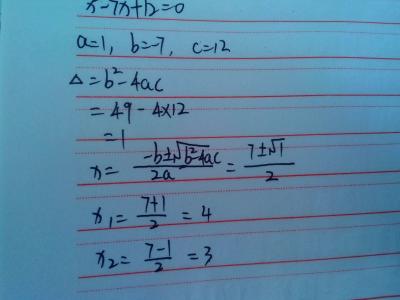 x-7x+12=0
a=1, b=-7, c=12
△=b²-4ac
=49-4×12
=1
x= -b±√b²-4ac / 2a = 7±√1 / 2
x₁= 7+1 / 2 =4
x₂= 7-1 / 2 =3